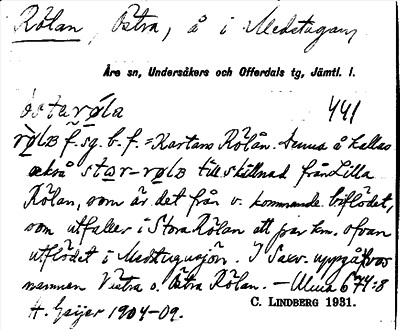 Rölan, Östra, å i Medstugan,
Åre sn, Undersåkers och Offerdals tg, Jämtl. l.
östarøla 441
rølɒ f. sg. b. f. = Kartans Rölån. Denna å kallas
också stor-rølɒ till skillnad från Lilla
Rölan, som är det från v. kommande biflödet,
som utfaller i Stora Rölan ett par km. ofvan
utflödet i Medstugusjön. I Saxv. uppgåfvos
namnen Västra o. Östra Rölan. – 674:8
H. Geijer 1904-09.
C. LINDBERG 1931.